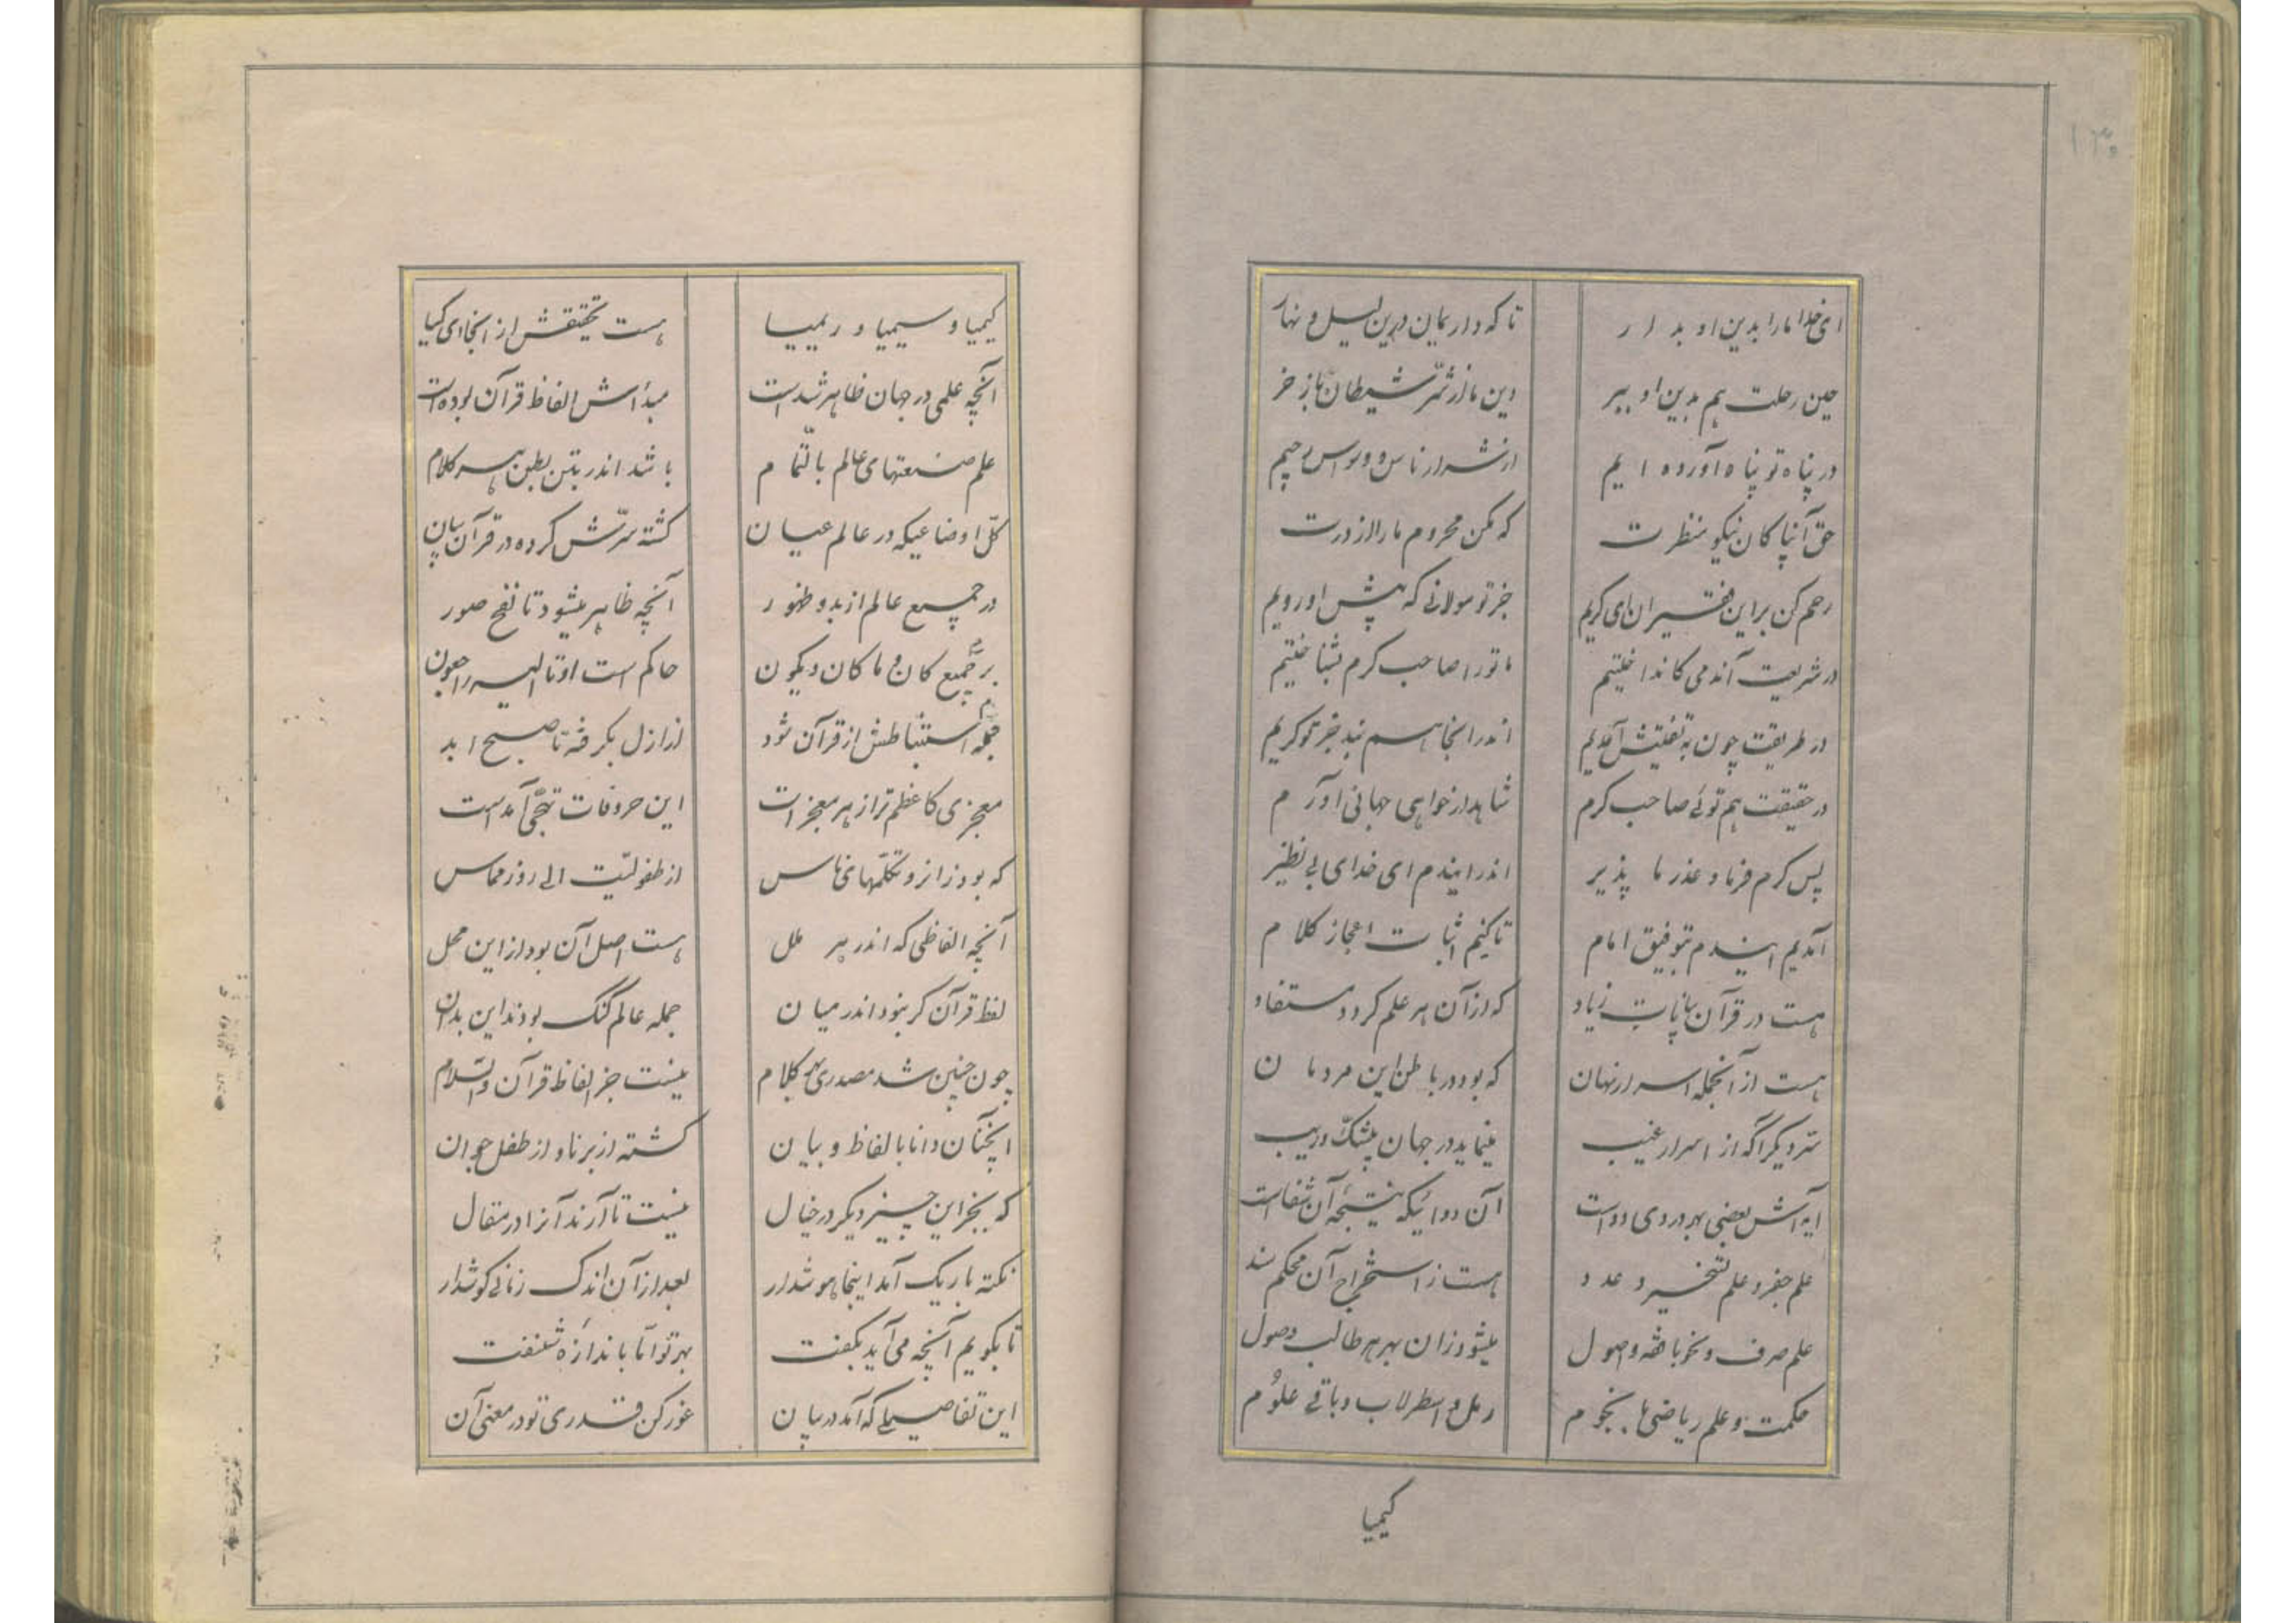 ۱۳۰
ای خدا ما را بدین او بدار
تا که داریمان درین لیل و نهار
حین رحلت هم بدین او ببر
دین ما از شر شیطان باز خر
در پناه تو پناه آورده ایم
از شرار ناس و وسواس رجیم
حق آنپاکان نیکو منظرت
که مکن محروم ما را از درت
رحم کن بر این فقیران ای کریم
جز تو مولائی که پیش او رویم
در شریعت آندمی کانداختیم
ما تو را صاحب کرم بشناختیم
در طریقت چون به تفتیش آمدیم
اندر اینجا هم نبد جز تو کریم
در حقیقت هم توئی صاحب کرم
شاهد ار خواهی جهانی آورم
پس کرم فرما و عذر ما پذیر
اندر ایندم ای خدای بی نظیر
آمدیم ایندم بتوفیق امام
تا کنیم اثبات اعجاز کلام
هست در قرآن بیانات زیاد
که از آن هر علم گردد مستفاد
هست از آنجمله اسرار نهان
که بود در باطن این مردمان
سر دیگر آگه از اسرار غیب
مینماید در جهان بیشک و ریب
آیه اش بعضی بهر دردی دواست
آن دوائیکه نتیجه آن شفاست
علم جفر و علم تسخیر و عدد
هست ز استخراج آن محکم سند
علم صرف و نحو با فقه و اصول
میشود زان بهر هر طالب وصول
حکمت و علم ریاضی با نجوم
رمل و اسطرلاب و باقی علوم
کیمیا
کیمیا و سیمیا و ریمیا
هست تحقیقش از انجا ای کیا
آنچه علمی در جهان ظاهر شد است
مبدأ اش الفاظ قرآن بوده است
علم صنعتهای عالم بالتمام
باشد اندر بتن بطن هر کلام
کل اوضاعیکه در عالم عیان
گشته سرش کرده در قرآن بیان
در جمیع عالم از بدو ظهور
آنچه ظاهر میشود تا نفخ صور
بر جمیع کان و ما کان و یکون
حاکم است او تا الیه راجعون
جمله استنباطش از قرآن شود
از ازل بگرفته تا صبح ابد
معجزی کاعظم تر از هر معجز است
این حروفات تهجی آمد است
که بود زانرو تکلمهای ناس
از طفولیت الی روز مماس
آنچه الفاظی که اندر هر ملل
هست اصل آن بود از این محل
لفظ قرآن گر نبود اندر میان
جمله عالم گنگ بودند این بدان
چون چنین شد مصدری هر کلام
نیست جز الفاظ قرآن والسلام
آنچنان دانا بالفاظ و بیان
گشته از برنا و از طفل جوان
که بجز این چیز دیگر در خیال
نیست تا آرند آنرا در مقال
نکته باریک آمد اینجا هوشدار
بعد از آن اندک زمانی گوشدار
تا بگویم آنچه می آید بگفت
بهر تو اما باندازه شنفت
این تفاصیلی که آمد در بیان
غور کن قدری تو در معنی آن